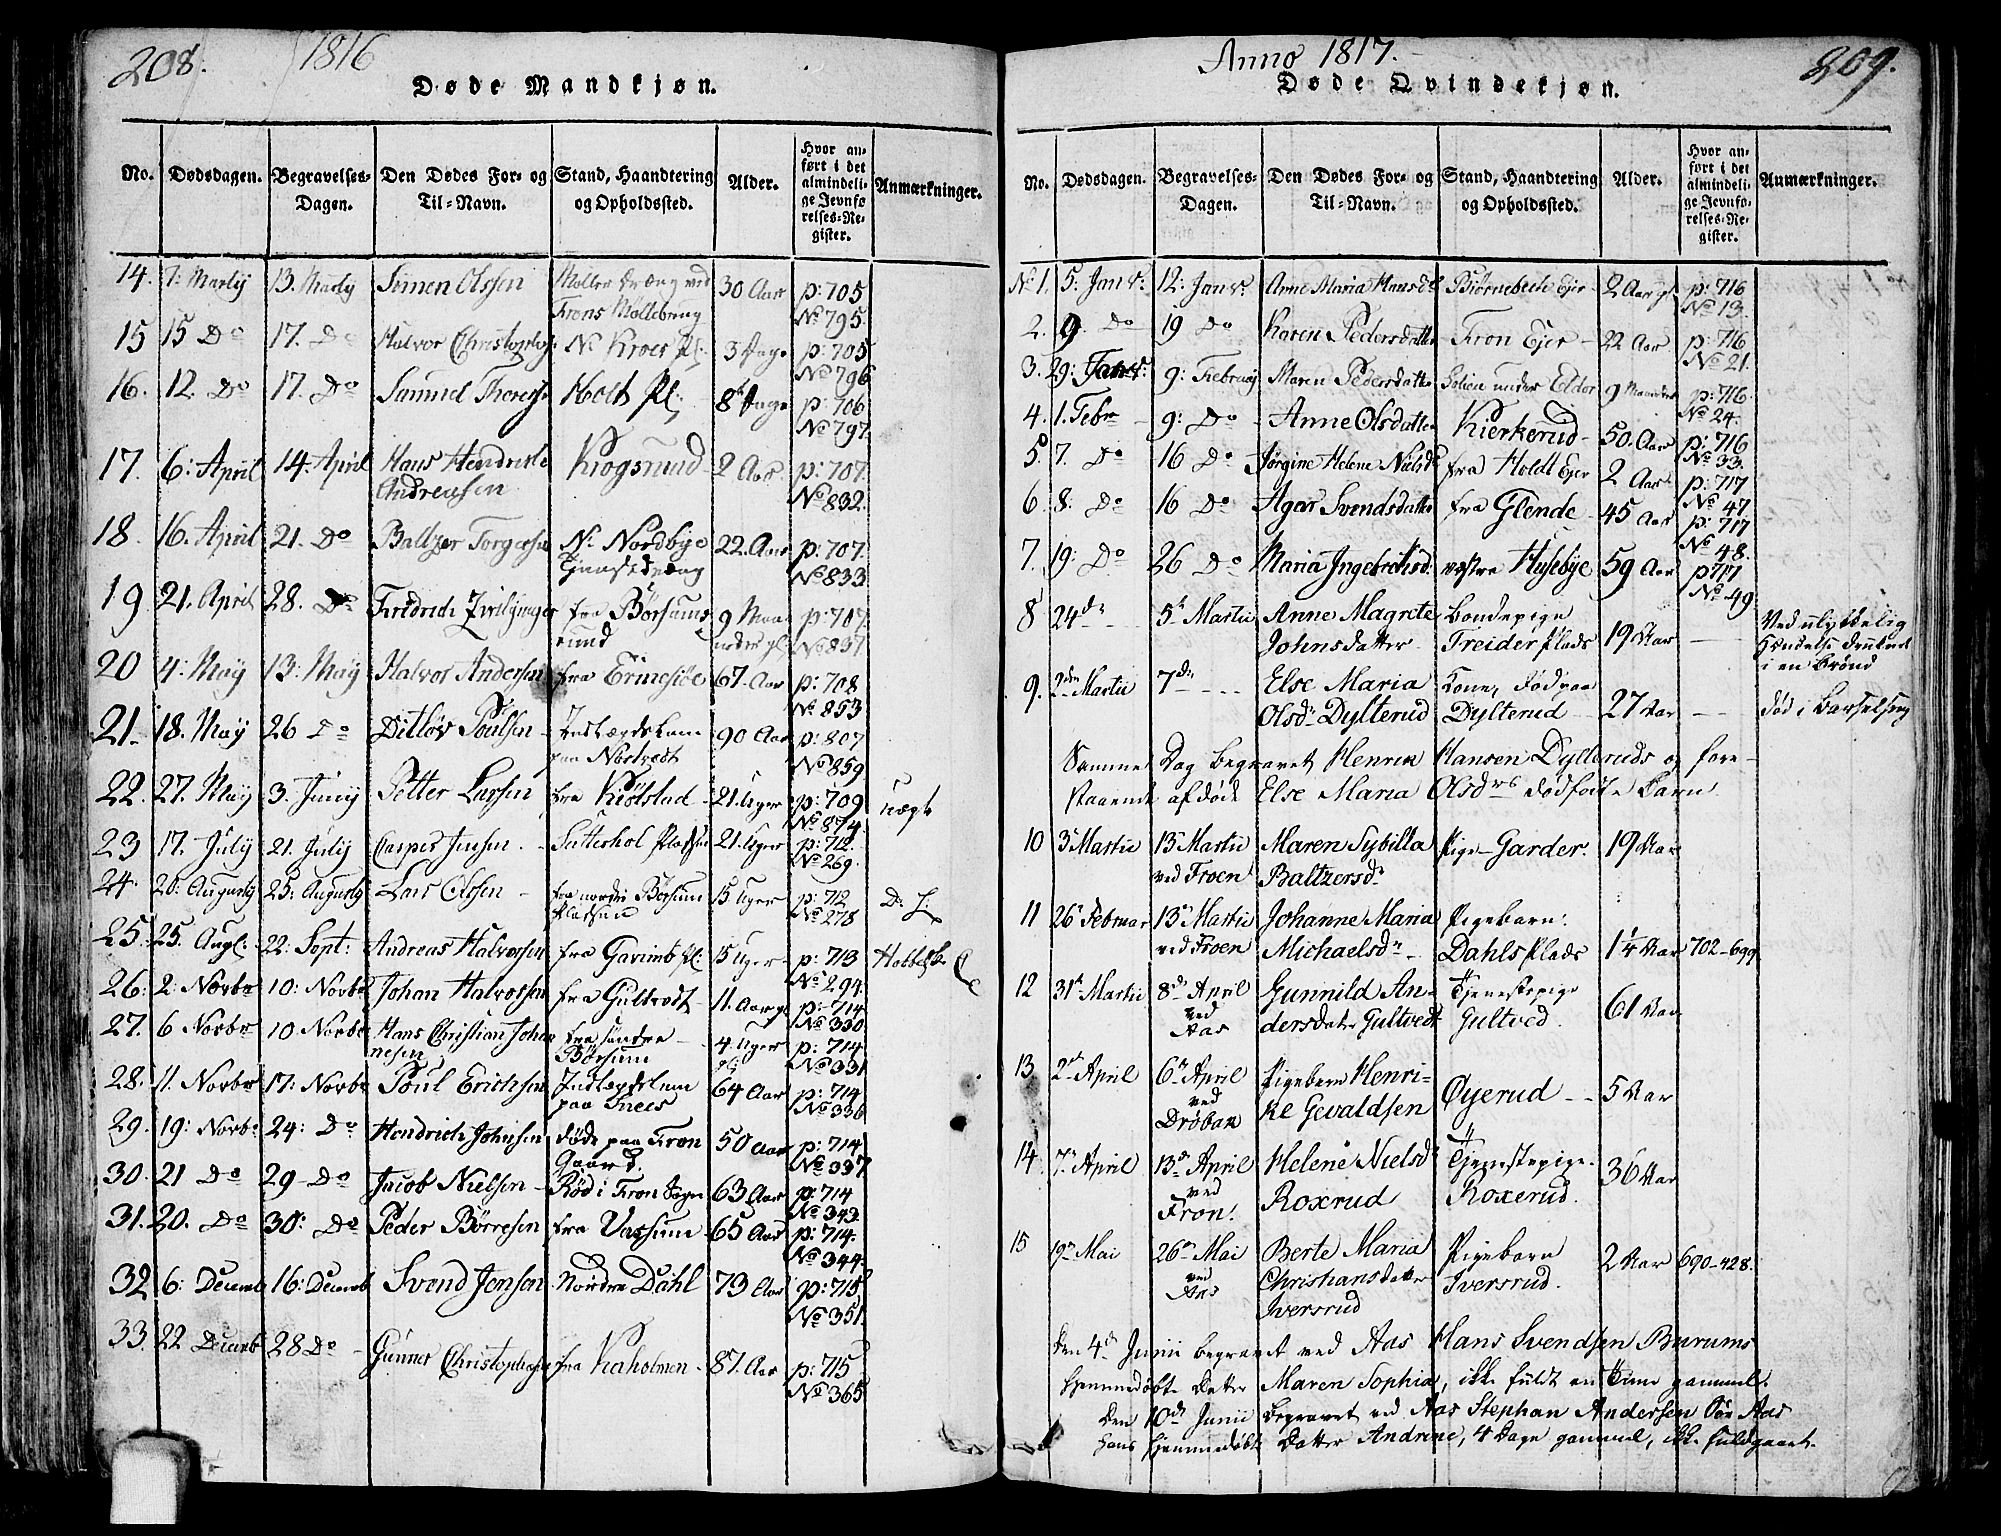 208. 1816
Døde Mandkjøn.
No. Dødsdagen. Begravelses-Dagen. Den Dødes For- og Til-Navn. Stand, Haandtering og Opholdssted. Alder. Hvor anført i det almindelige Jevnførelses-Register. Anmærkninger.
14. 7: Martij 13. Martij Simen Olssen 30 Aar p: 705 No 795.
15 15 Do 17. Do Halvor N. Kroer Pl: 3 Dage p: 705 No 796
16. 12. Do 17. Do Samuel Holt Pl: 8 Dage p: 706 No 797.
17. 6: April 14. April Hans Hendrich Andreasen Krogsrud 2 Aar. p: 707. No 832.
18. 16. April 21. Do Baltzer N. Nordbye 22. Aar p: 707. No 833.
19 21. April 28. Do Fredrich fra Børsumsrund 9 p: 707. No 837
20 4: May 13: May Halvor Andersen fra 67. Aar p: 708 No 853
21. 18. May 26 Do Ditløv Poulsen paa Nordvedt 90 Aar p: 807 No 859
22. 27. May 3. Junij Petter Larsen fra Kiølstad 21. Uger p: 709 No 874. uægte
23 17. July 21. July Casper Jensen 21. Uger p: 712. No 269.
24. 20: Augusty 25: Augusty Lars Olssen fra nordre Børsum 15 Uger p: 712 No 278 D. L:
25. 25. Augl: 22: Sept: Andreas Halvorsen fra Pl: 15 Uger p: 713 No 294.
26: 2: Novbr 10: Novbr Johan Halvorsen fra Gultvedt 11. Aar gl: p: 714 No 330.
27. 6 Novbr 10 Novbr Hans Christian Johannesen fra søndre Børsum 4. Uger gl: p: 714 No 331
28. 11. Novbr 17: Novbr Poul Erichsen paa 64 Aar p: 714 No 336
29. 19: Novbr 24: Do Hendrich Johnsen døde paa Fron Gaard. 50 Aar p: 714 No 337
30. 21 Do 29 Do Jacob Nielsen Rød i Fron Sogn 63 Aar p: 714 No 343.
31. 20. Do 30: Do Peder Børresen fra Vassum 65 Aar p: 714. No 344.
32 6: Decemb 16: Decemb Svend Jensen Nordre Dahl 73 Aar p: 715 No 351.
33. 22 Decemb 28 Do Gunner fra 87. Aar p: 715 No 365
Anno 1817. 209.
Døde Qvindekjøn.
No. Dødsdagen. Begravelses-Dagen. Den Dødes For- og Til-Navn. Stand, Haandtering og Opholdssted. Alder. Hvor anført i det almindelige Jevnførelses-Register. Anmærkninger.
No 1. 5: Janv: 12: Janv: Anne Maria Hansd Ejer 2 Aar gl. p: 716 No 13.
2. 9. Do 19 Do Karen Pedersdatter Fron Ejer 22 Aar p: 716 No 21.
3. 29: Janv: 9: February Maren Pedersdatter under 9 p: 716 No 24.
4. 1. Febr 9: Do Anne Olsdatter Kierkerud 50. Aar p: 716 No 33.
5. 7. Do 16 Do Jørgine Helene Nielsd fra Holdt Ejer 2 Aar p: 717 No 47
6 8. Do 16 Do Agar Svendsdatter fra Glende 45 Aar p: 717 No 48.
7. 19: Do 26 Do Maria Ingebrethsd. vestre Husebye 59 Aar p 717 No 49
8 24de 5t Martii Anne Magrete Johnsdatter Bondepige Freider Plads 19 Aar Ved ulykkelig Hændelse druknet i en Brønd
9. 2den Martii 7de Else Maria Olsdr Dylterud Kone, Dylterud 27 Aar død i Barselseng
Samme Dag begravet Henrik Hansen Dylteruds og foresstaaende afdøde Else Maria Olsdrs dødfødte Barn
10 3. Martii 13. Martii ved Froen Maren Sybilla Baltzersdr Pige Garder. 19 Aar
11 26. Februar 13. Martii ved Froen Johanne Maria Michaelsdr Pigebarn. Dahls Plads 702-699.
12 31te Martii 8de April ved Aas Gunnild Andersdatr Gultvedt Tjenestepige Gultved. 61 Aar
13 2d April 6te April ved Drøbak Pigebarn Henrike Gevaldsen Øyerud 5 Aar
14 7de April 13de April ved Fron. Helene Nielsdr Roxrud Tjenestepige. Roxerud. 36 Aar
15 19de Mai 26de Mai ved Aas Berte Maria Christiansdatter Iversrud Pigebarn Iversrud. 2 Aar 690-428.
Den 4de Junii begravet ved Aas Hans Svendsen Burums
hjemmedøbte Datter Maren Sophia, ikke fuldt en Time gammel.
Den 10de Junii begravet ved Aas Stephan Andersen Sør Aas
hans hjemmedøbt Datter Andrine, 4 Dage gammel, ikke fuldgaaet.